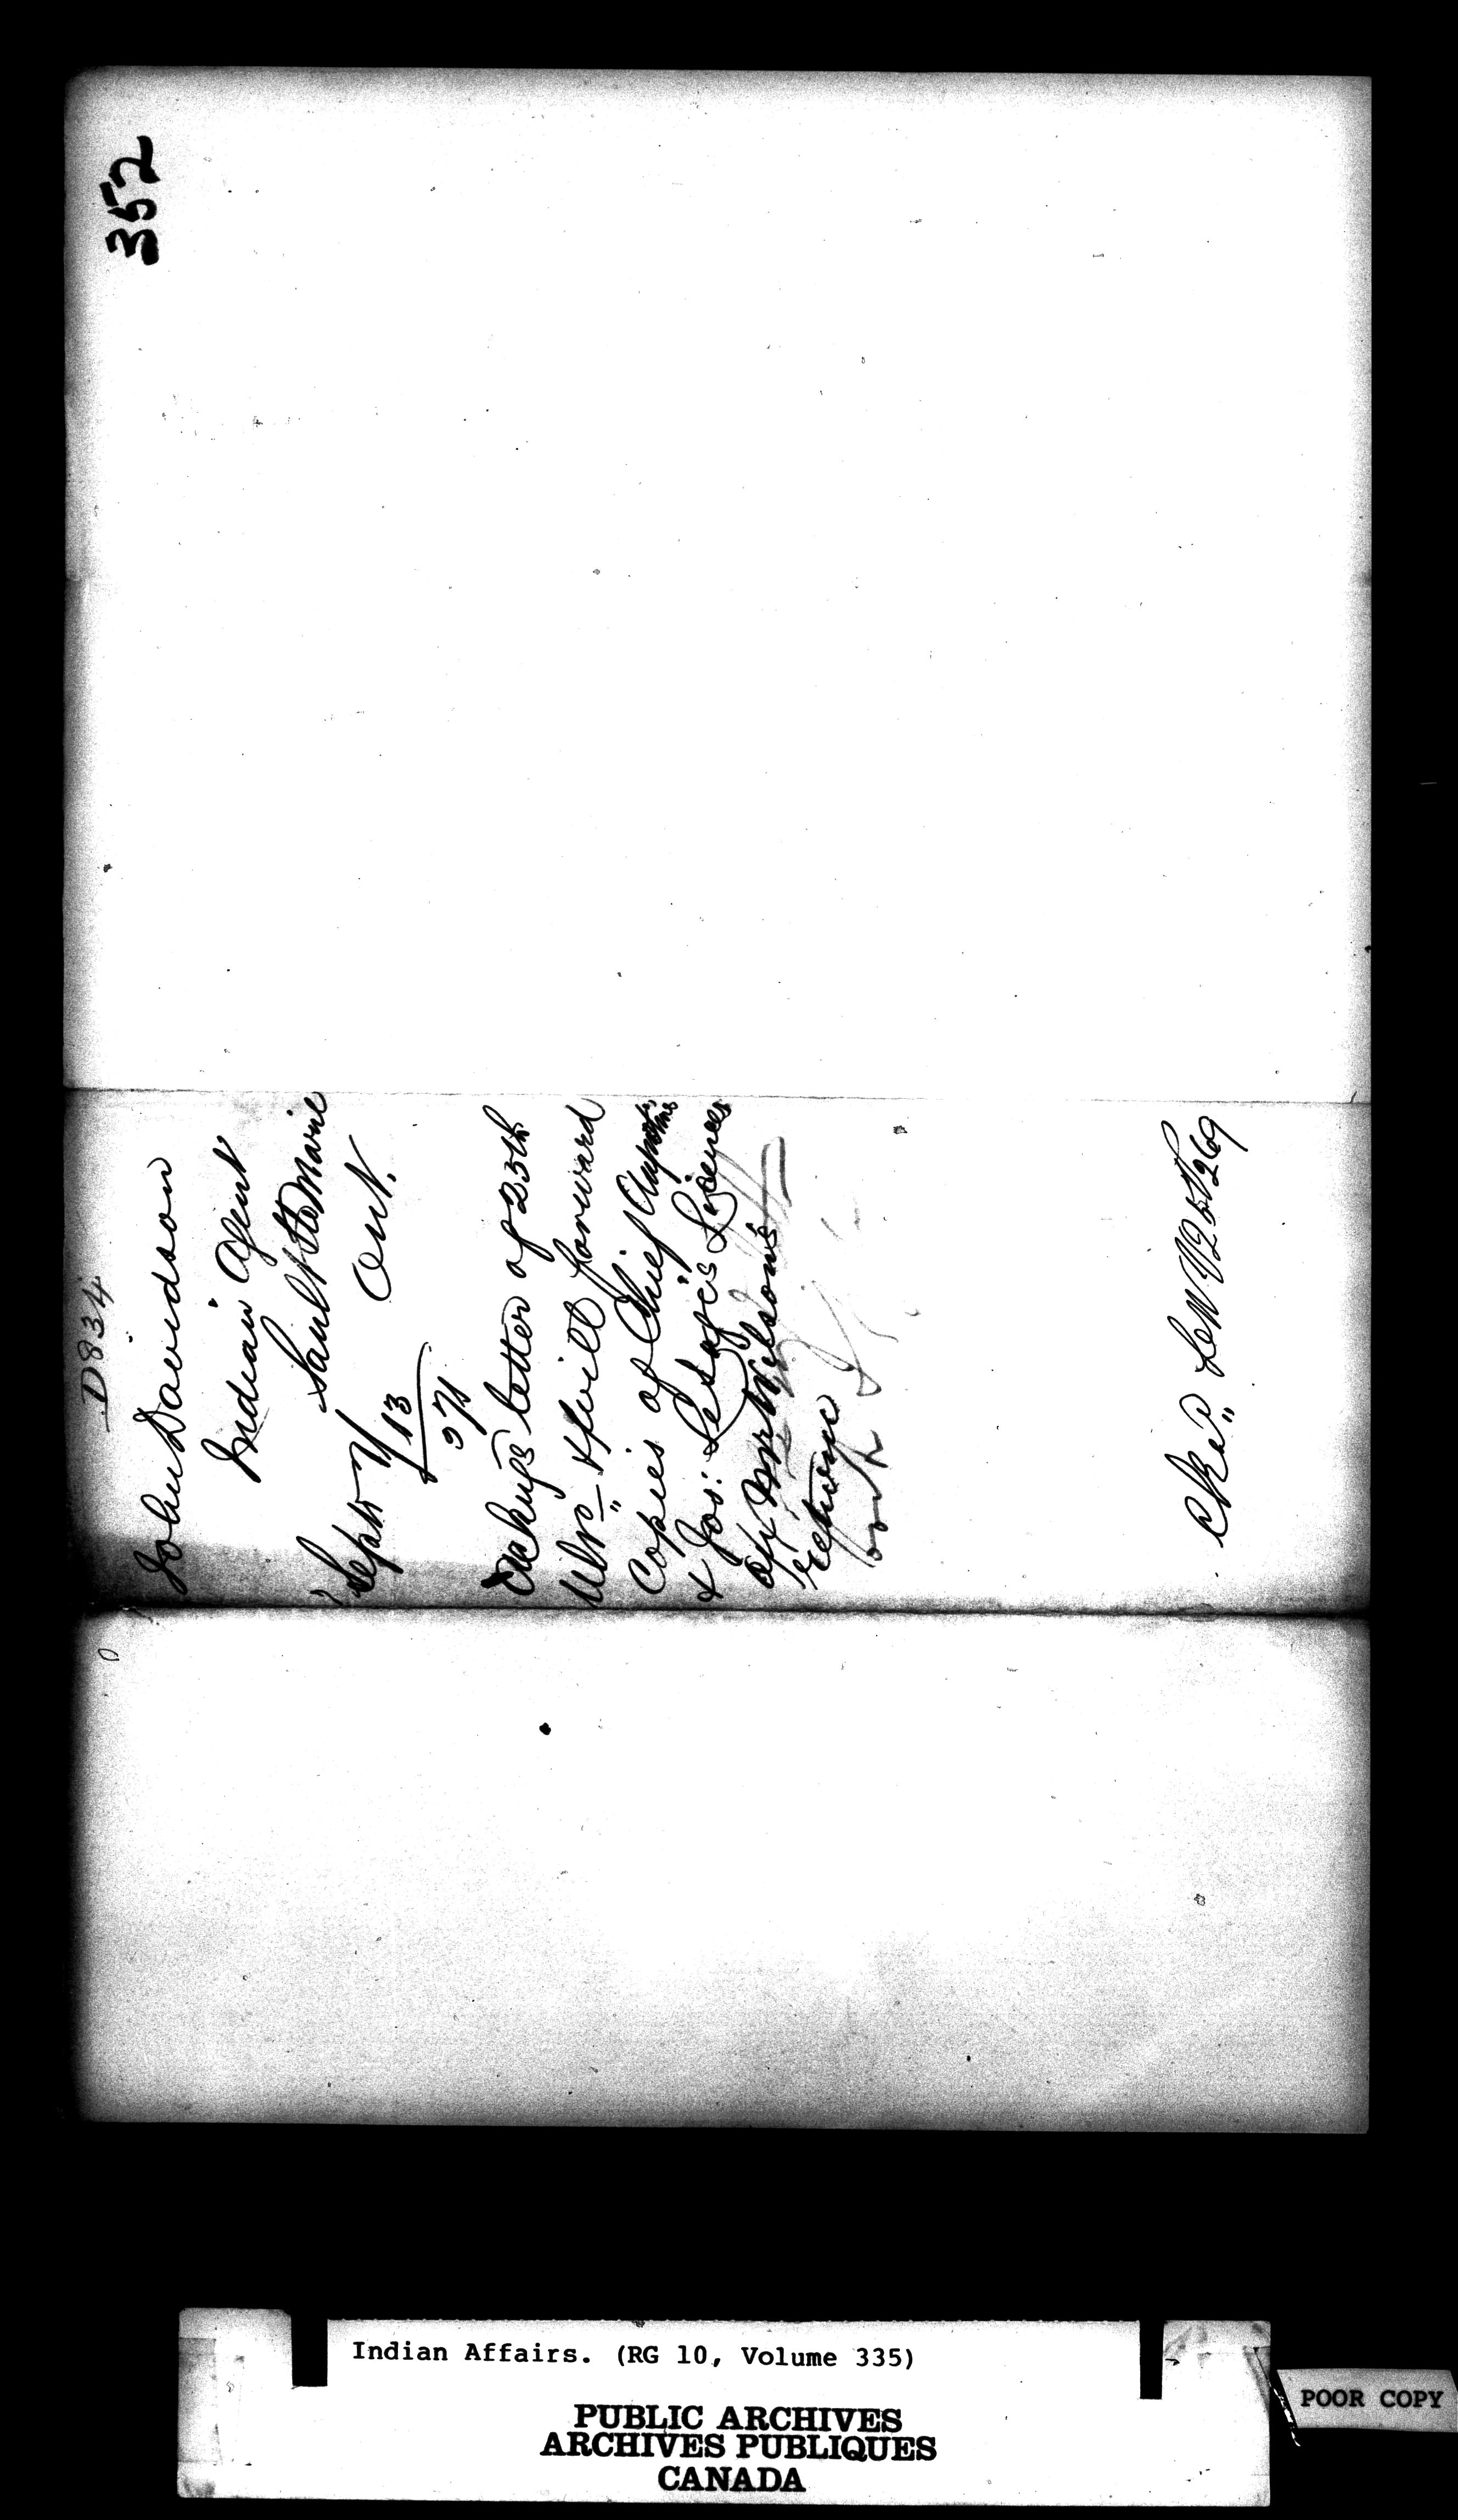 352
D834
John Davidson
Indian Agent
Sault Ste Marie
Ont.
Septr 7/13
Ackngs letter of 25th
Ulto & will forward
Copies of Chief
& Jos: Lesage's Licenses
aft Mr Wilson's
return
Indian Affairs. (RG 10, Volume 335)
PUBLIC ARCHIVES
ARCHIVES PUBLIQUES
CANADA
POOR COPY